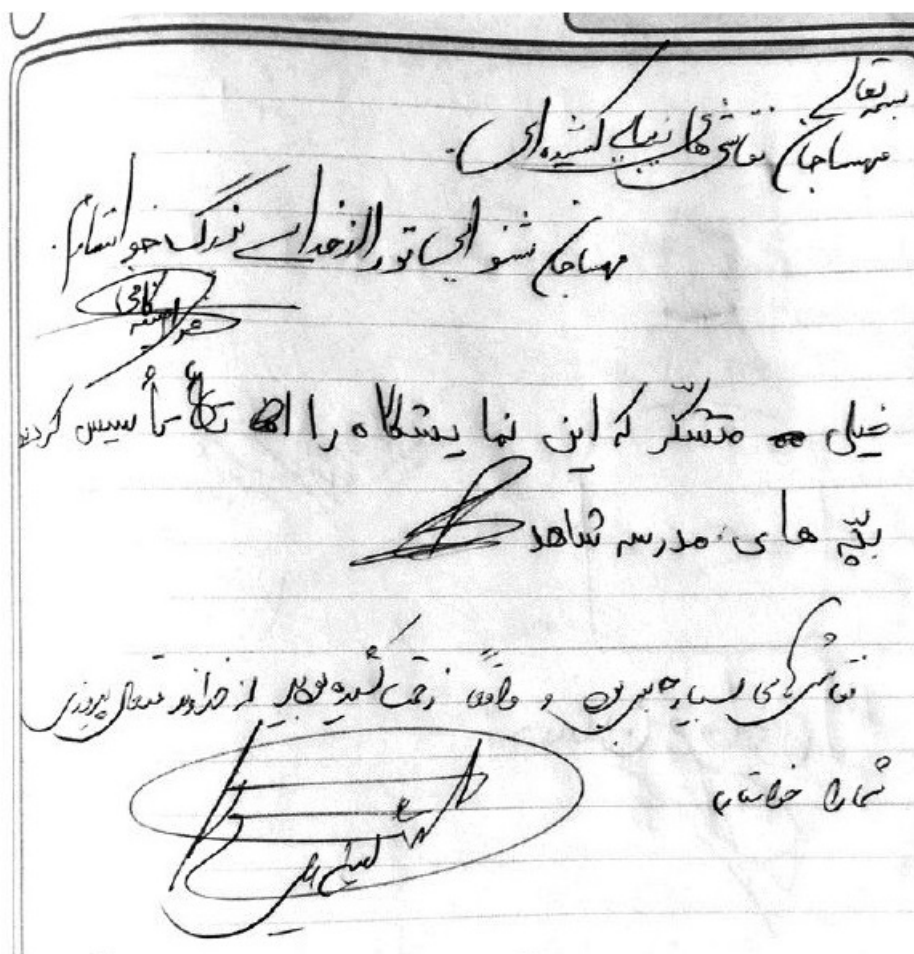 بسمه تعالی
مهسا جان نقاشی های زیبایی کشیده ای.
مهسا جان شنوایی تو را از خدای بزرگ خواستارم.
خیلی متشکّر که این نمایشگاه را تأسیس کردید
بچّه های مدرسه شاهد
نقاشی های بسیار جالبی بود و واقعاً زحمت کشیده بودید از خداوند متعال پیروزی
شما را خواستارم